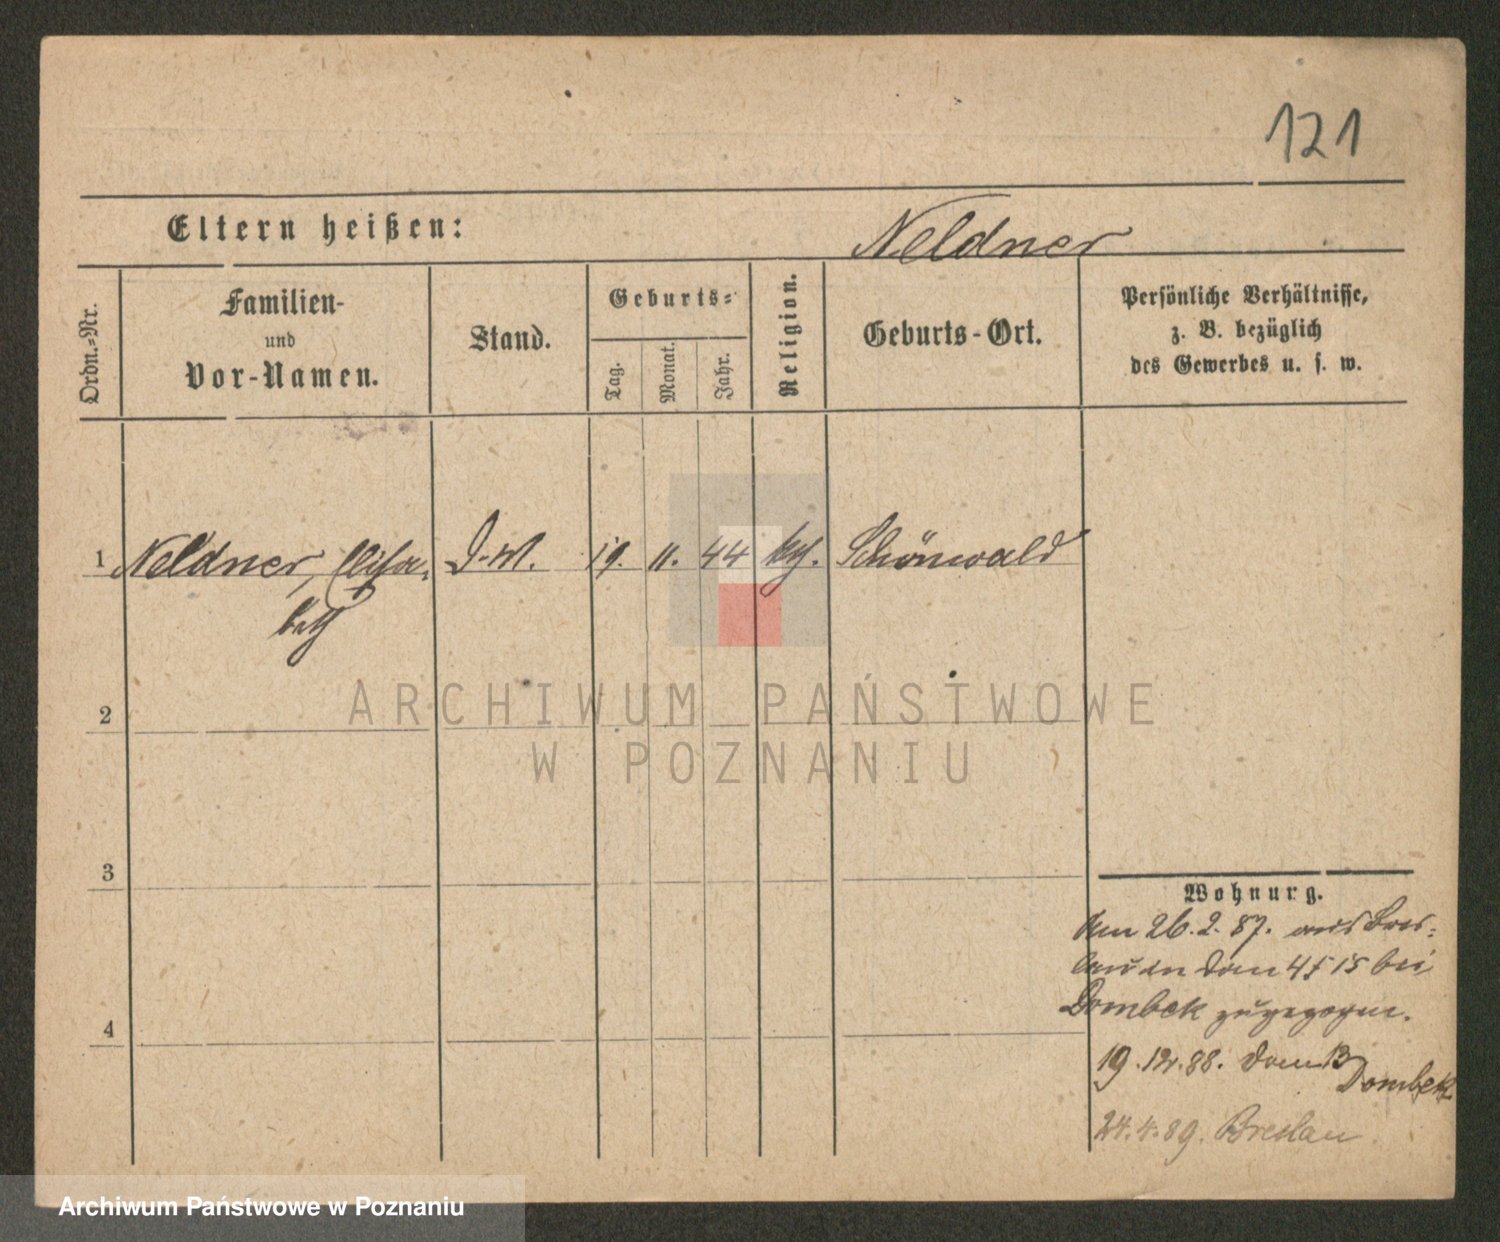 121
Eltern heißen:
Neldner
Ordn.-Nr.
Familien-
und
Vor-Namen.
Stand.
Geburts-
Tag.
Monat.
Jahr.
Religion.
Geburts-Ort.
Persönliche Verhältnisse,
z. B. bezüglich
des Gewerbes u. s. w.
1 Neldner, Elisa- 19. 11. 44 kth. Schönwald
beth
2
ARCHIWUM PAŃSTWOWE
W POZNANIU
3
Wohnung.
Am 26.2.87. aus Bres-
lau in Dom 4/5 bei
Dombek zugezogen.
4
19.12.88. Dom 13
Dombek
24.4.89. Breslau
Archiwum Państwowe w Poznaniu